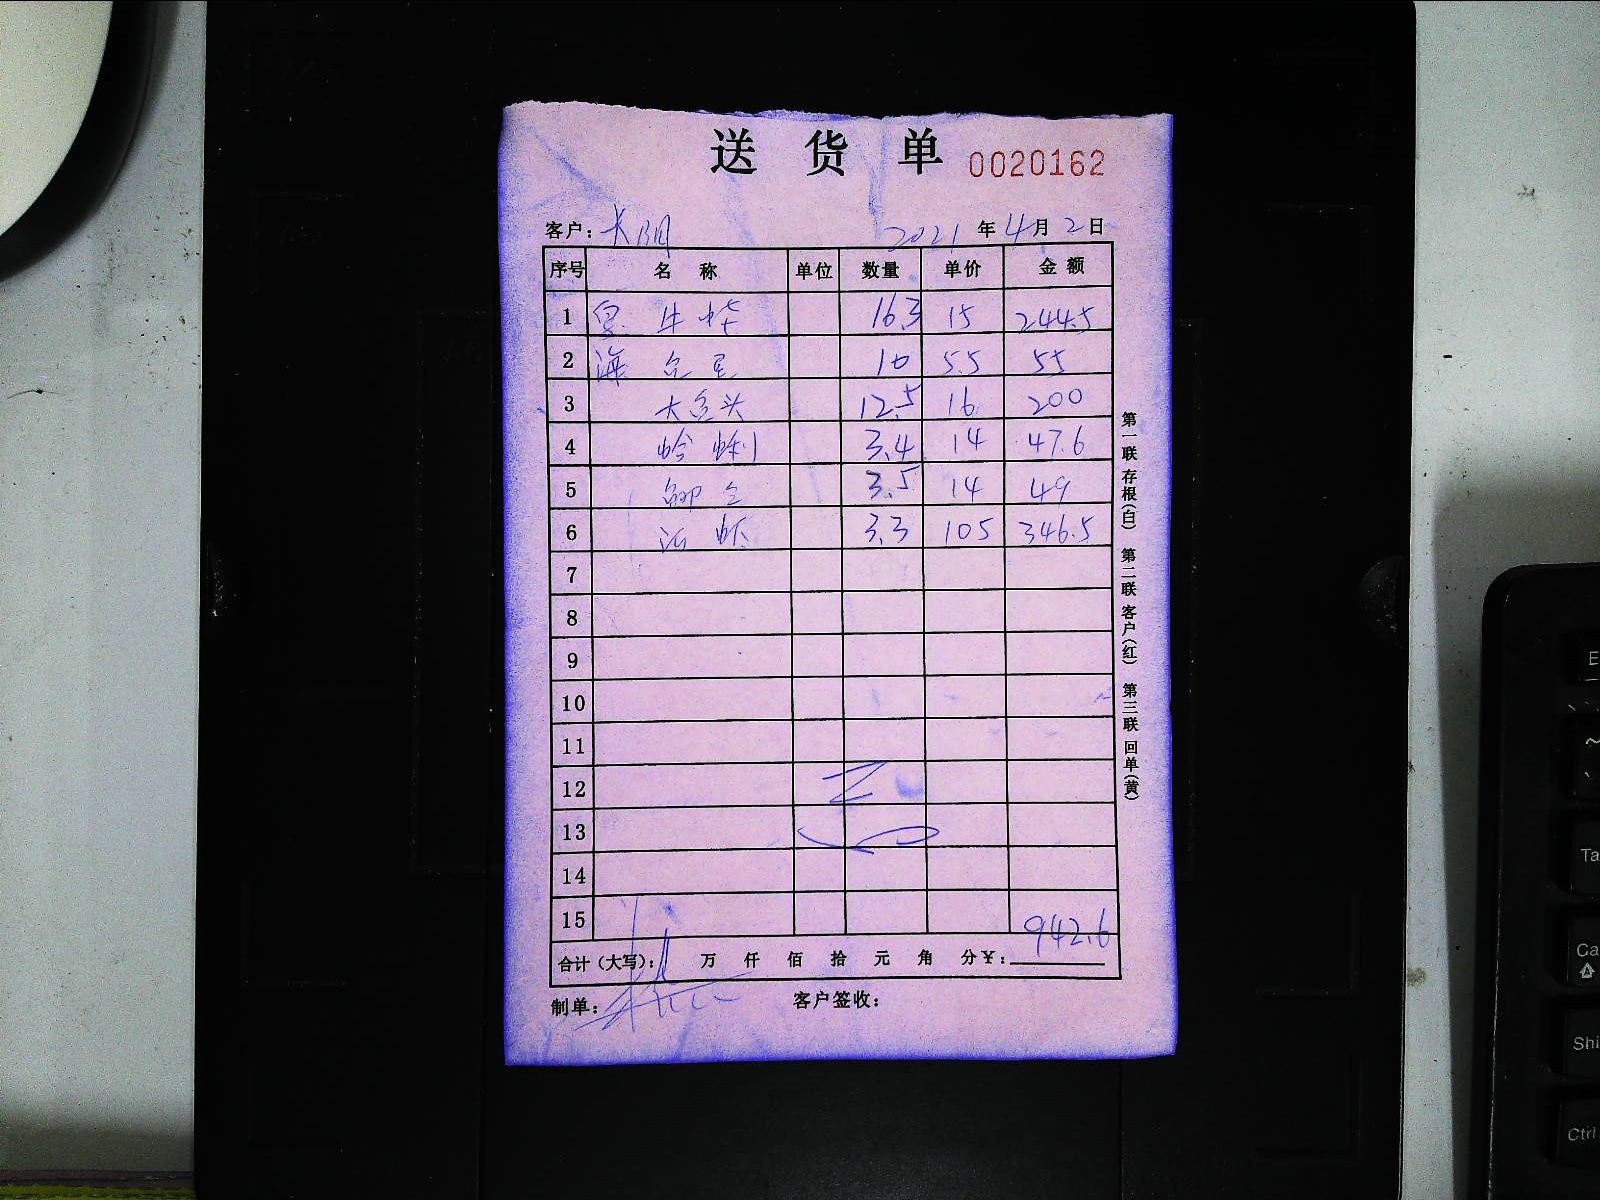 送 货 单 0020162
客户: 2021 年 4 月 2 日
序号 名 称 单位 数量 单价 金 额
1 16.3 15 244.5
2 海 10 5.5 55
3 大鱼头 12.5 16 200
4 蛤蜊 3.4 14 47.6
5 3.5 14 49
6 活虾 3.3 105 346.5
7
8
9
10
11
12
13
14
15
942.6
合计(大写): 万 仟 佰 拾 元 角 分 ¥:
制单: 客户签收:
第一联 存根(白) 第二联 客户(红) 第三联 回单(黄)
E
Ta
Ca
Shi
Ctrl